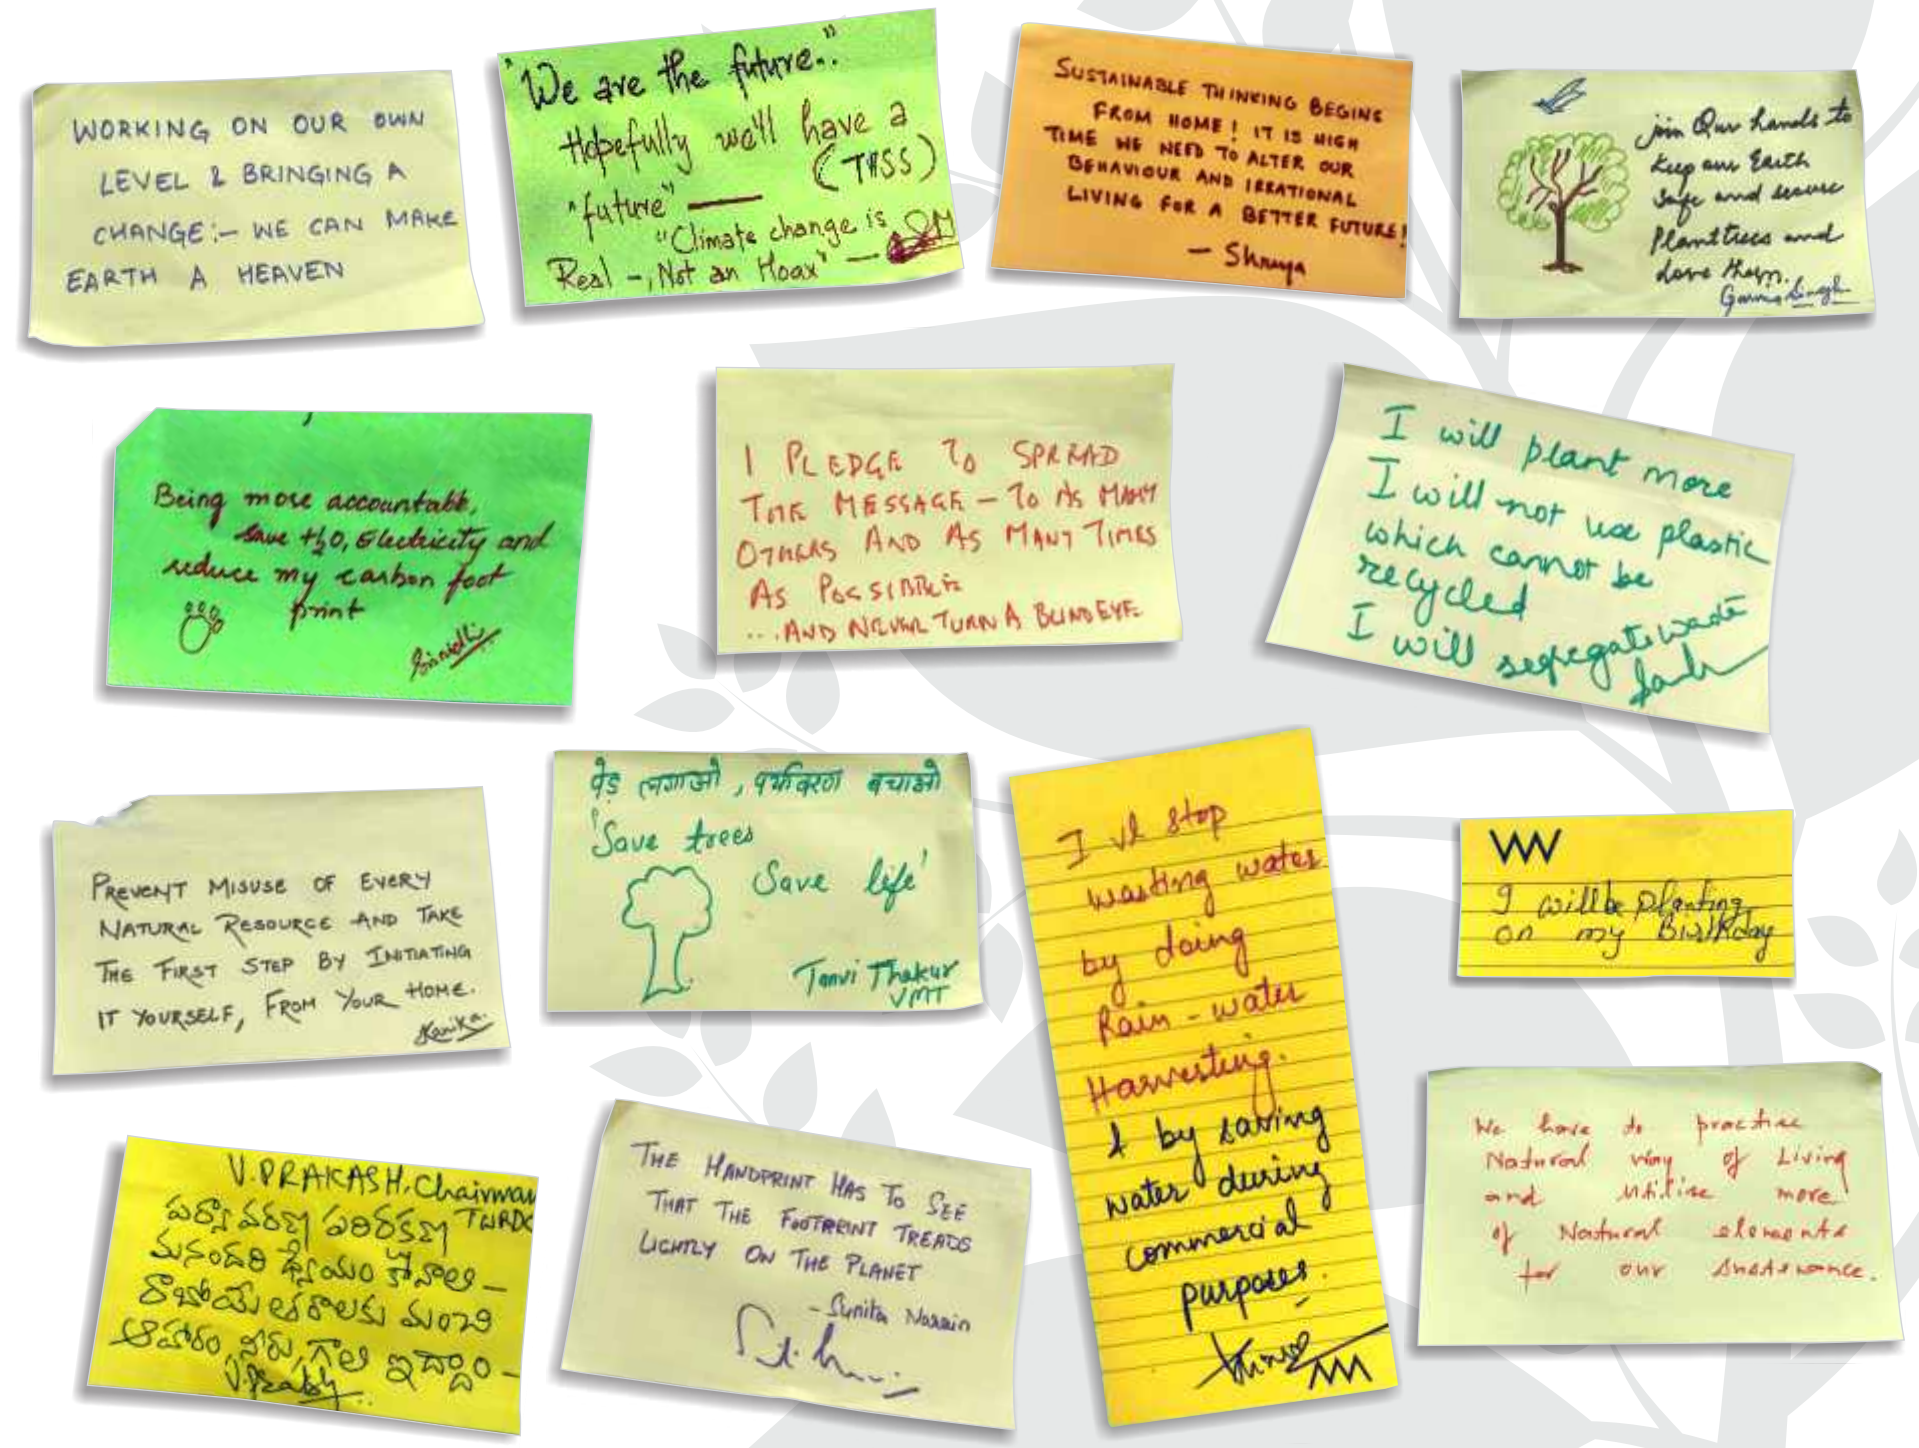 WORKING ON OUR OWN
LEVEL & BRINGING A
CHANGE:- WE CAN MAKE
EARTH A HEAVEN
"We are the future.."
Hopefully we'll have a
"future" — (TISS)
"Climate change is
Real -, Not an Hoax" —
SUSTAINABLE THINKING BEGINS
FROM HOME! IT IS HIGH
TIME WE NEED TO ALTER OUR
BEHAVIOUR AND IRRATIONAL
LIVING FOR A BETTER FUTURE!
- Shreya
join Our hands to
keep our Earth
safe and secure
Plant trees and
Love them.
Singh
Being more accountable,
save H2O, Electricity and
reduce my carbon foot
print
I PLEDGE TO SPREAD
THE MESSAGE - TO AS MANY
OTHERS AND AS MANY TIMES
AS POSSIBLE
... AND NEVER TURN A BLIND EYE.
I will plant more
I will not use plastic
which cannot be
recycled
I will segregate waste
PREVENT MISUSE OF EVERY
NATURAL RESOURCE AND TAKE
THE FIRST STEP BY INITIATING
IT YOURSELF, FROM YOUR HOME.
Kanika
पेड़ लगाओ, पर्यावरण बचाओ
'Save trees
Save life'
Tanvi Thakur
VMT
I vl stop
wasting water
by doing
Rain-water
Harvesting.
& by saving
water during
commercial
purposes.
I will be planting
on my Birthday
V. PRAKASH, Chairman
పర్యావరణ పరిరక్షణ TWRDC
మనందరి ధ్యేయం కావాలి -
రాబోయే తరాలకు మంచి
ఆహారం, నీరు, గాలి ఇద్దాం -
V. Prakash
THE HANDPRINT HAS TO SEE
THAT THE FOOTPRINT TREADS
LIGHTLY ON THE PLANET
- Sunita Narain
We have to practise
Natural way of Living
and utilise more
of Natural elements
for our sustenance.